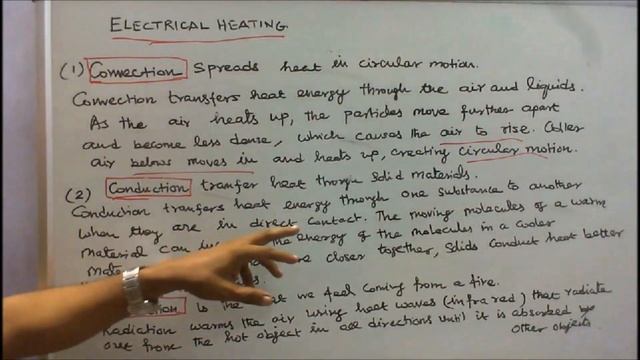 ELECTRICAL HEATING
(1) Convection Spreads heat in circular motion.
Convection transfers heat energy through the air and liquids.
As the air heats up, the particles move further apart
and become less dense, which causes the air to rise. Coller
air below moves in and heats up, creating circular motion.
(2) Conduction transfer heat through solid materials.
Conduction tranfers heat energy through one substance to another
when they are in direct contact. The moving molecules of a warm
material can the energy of the molecules in a cooler
closer together, solids conduct heat better
is the we feel coming from a fire.
Radiation warms the air using heat waves (infra red) that radiate
out from the hot object in all directions until it is absorbed by
other objects